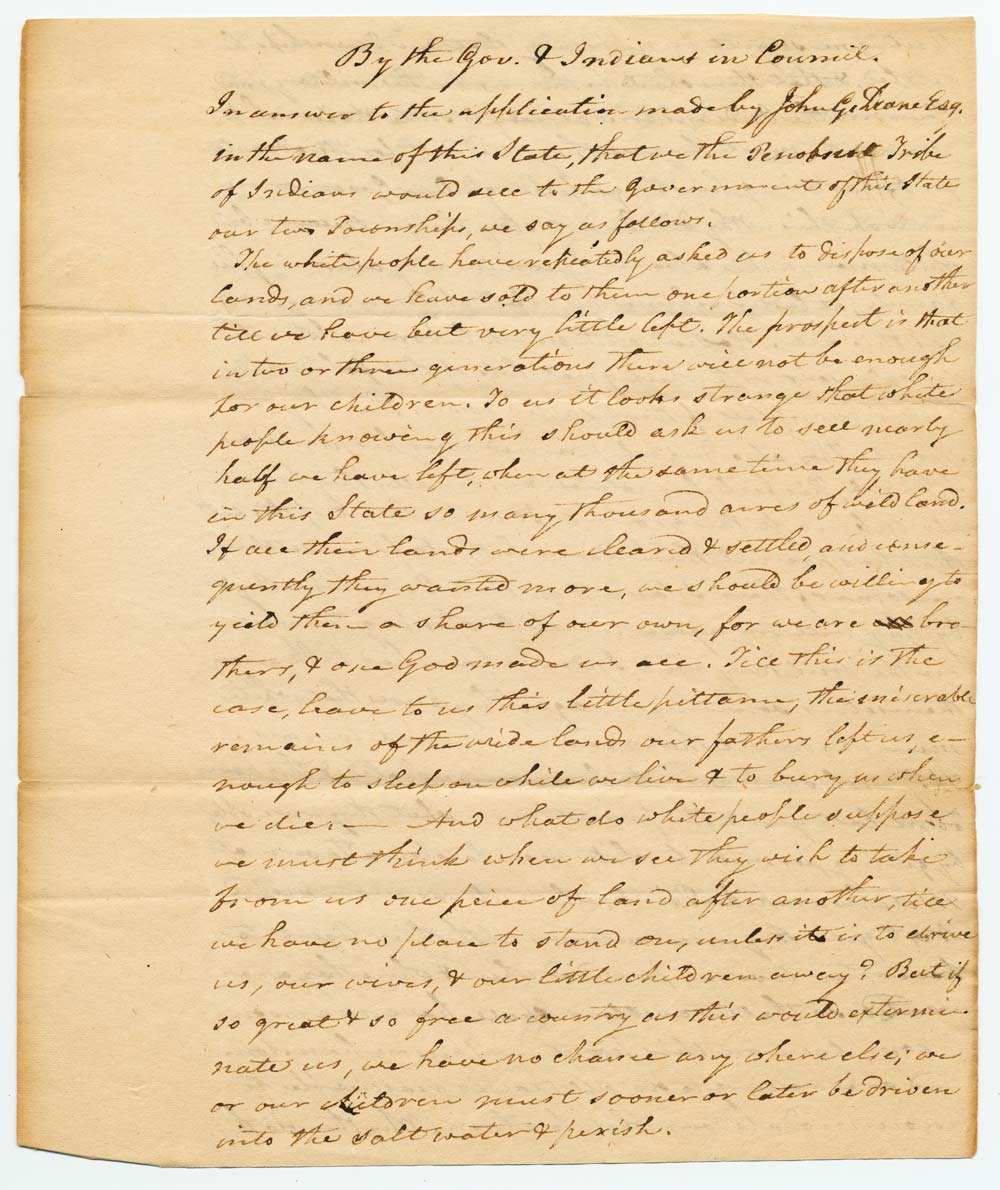 By the Gov. & Indians in Council.
In answer to the application made by John G. Deane Esq.
in the name of this State, that we the Penobscot Tribe
of Indians would sell to the Government of this State
our two Townships, we say as follows.
The white people have repeatedly asked us to dispose of our
lands, and we have sold to them one portion after another
till we have but very little left. The prospect is that
in two or three generations there will not be enough
for our children. To us it looks strange that white
people knowing this should ask us to sell nearly
half we have left, when at the same time they have
in this State so many thousand acres of wild land.
If all their lands were cleared & settled, and conse-
quently they wanted more, we should be willing to
yield them a share of our own, for we are bro-
thers, & one God made us all. Till this is the
case, leave to us this little pittance, the miserable
remains of the wide lands our fathers left us, e-
nough to sleep on while we live & to bury us when
we die. — And what do white people suppose
we must think when we see they wish to take
from us one peice of land after another, till
we have no place to stand on, unless it is to drive
us, our wives, & our little children away? But if
so great & so free a country as this would extermi-
nate us, we have no chance any where else; we
or our children must sooner or later be driven
into the salt water & perish.